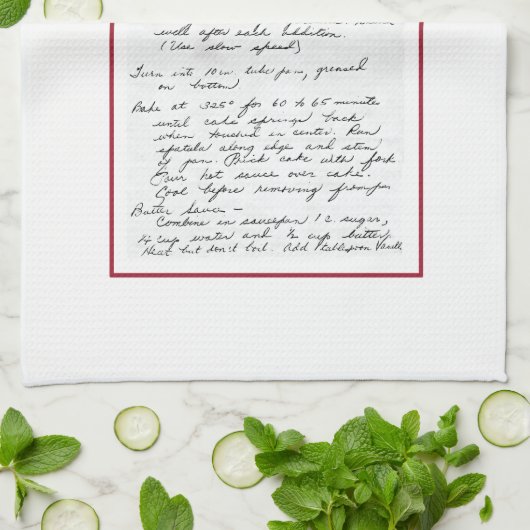 well after each addition.
(Use slow speed)
Turn into 10 in. tube pan, greased
on bottom)
Bake at 325° for 60 to 65 minutes
until cake springs back
when touched in center. Run
spatula along edge and stem
of pan. Prick cake with fork
Pour hot sauce over cake.
Cool before removing from pan
Butter Sauce —
Combine in saucepan 1 c sugar,
¼ cup water and ½ cup butter,
Heat but don't boil. Add 1 tablespoon Vanilla